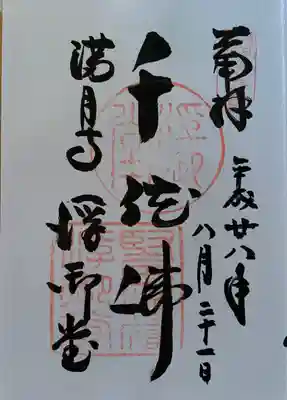 奉拝
平成廿八年
八月二十一日
千躰佛
満月寺
浮御堂